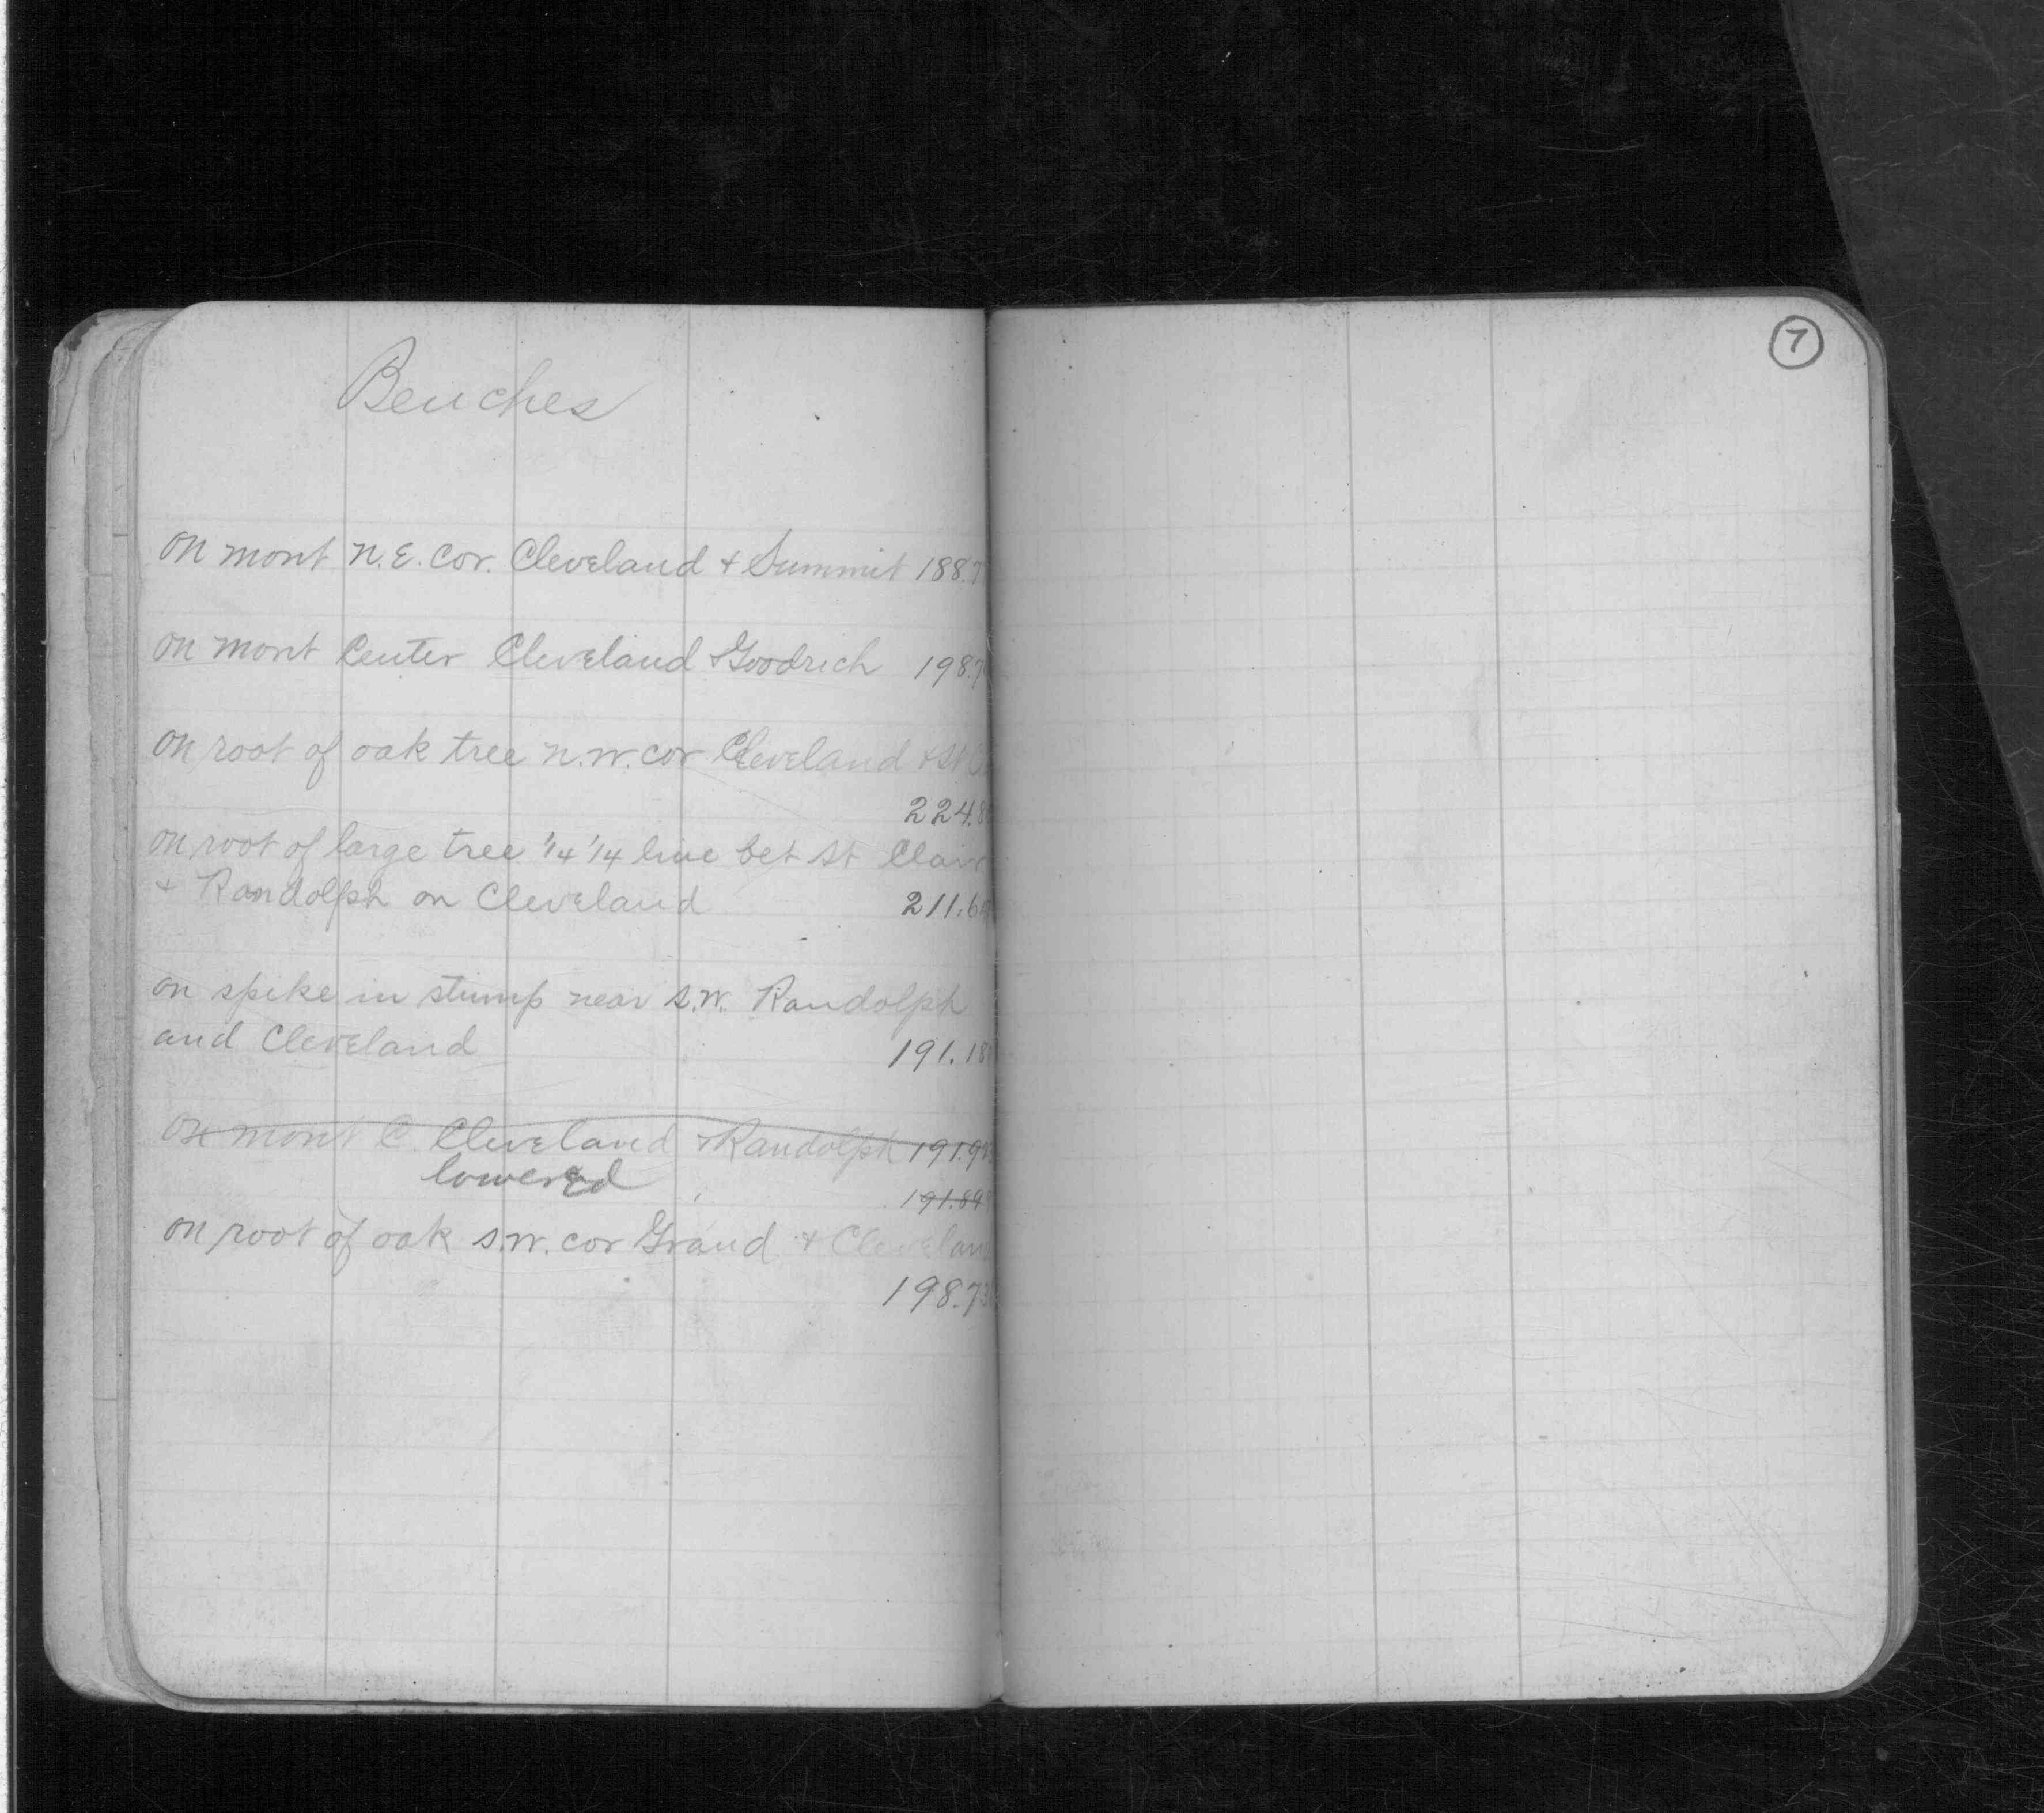 Benches
7
on mont N.E. cor. Cleveland & Summit 188.7
on mont Center Cleveland & Goodrich 198.7
on root of oak tree N.W. cor Cleveland & St
224.8
on root of large tree 1/4 1/4 line bet St Clair
& Randolph on Cleveland 211.6
on spike in stump near S.W. Randolph
and Cleveland 191.18
on mont C. Cleveland & Randolph 191.9
lowered
191.84
on root of oak S.W. cor Grand & Clevelan
198.73